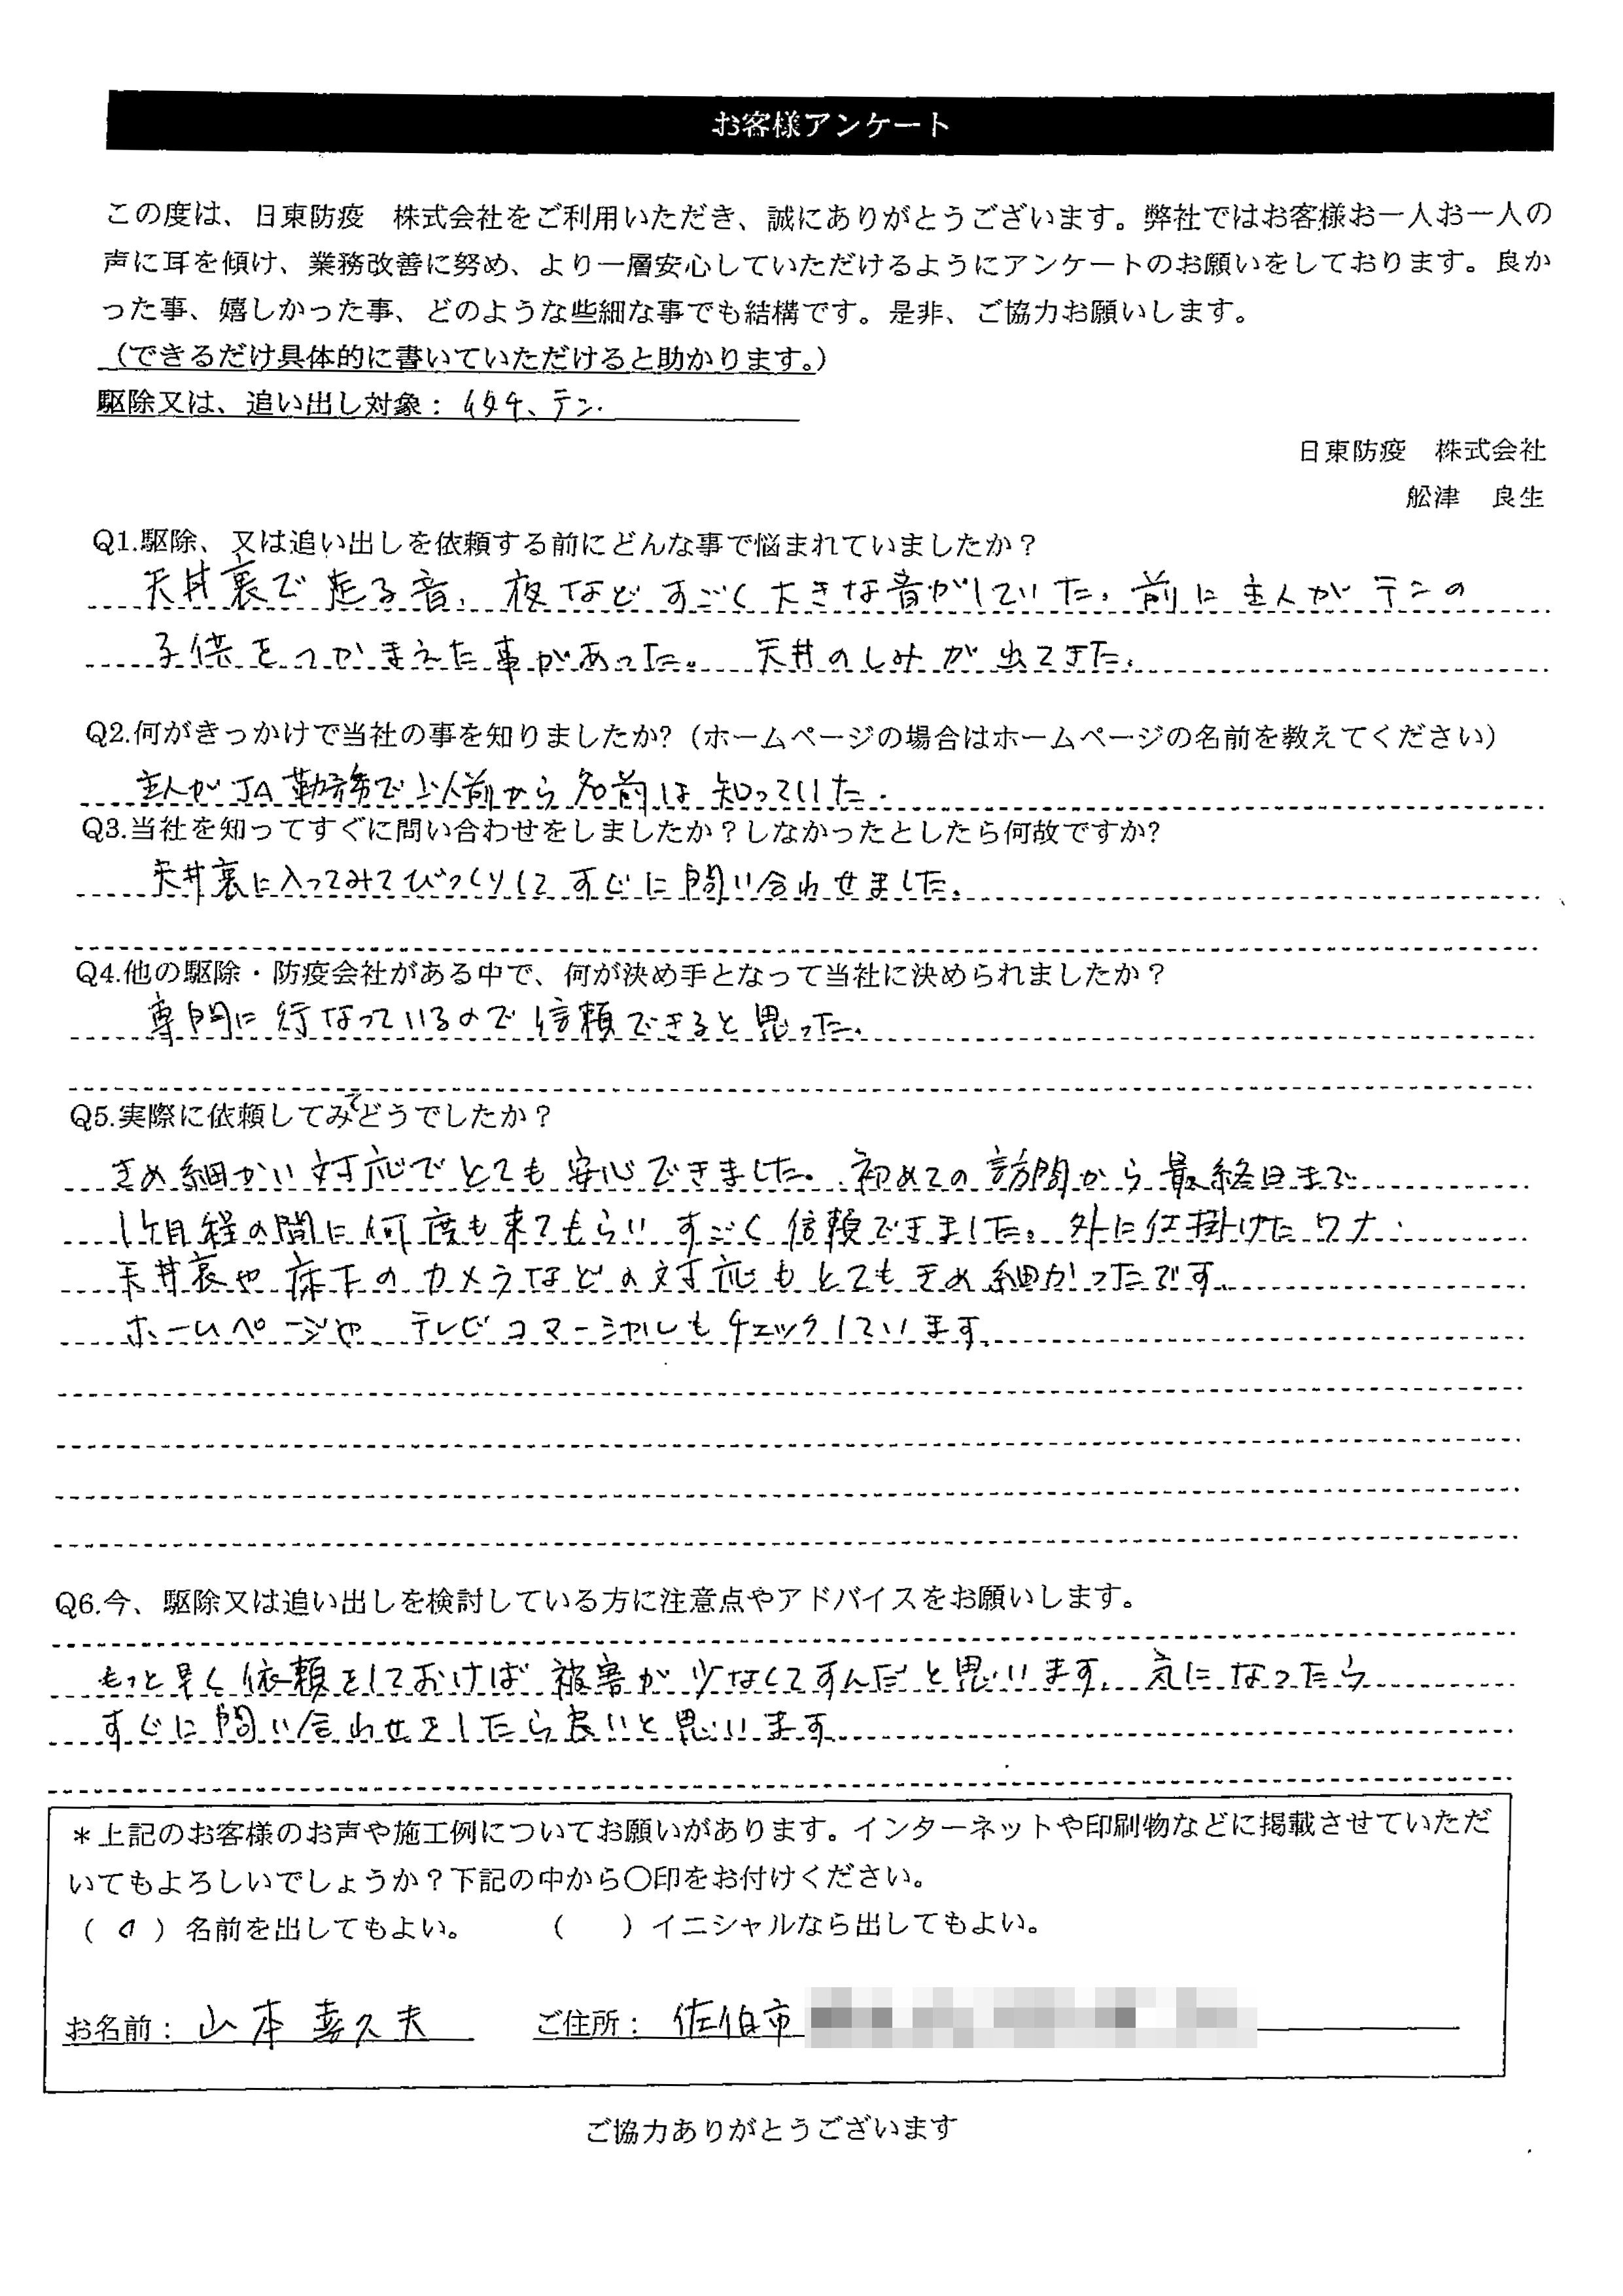 お客様アンケート
この度は、日東防疫　株式会社をご利用いただき、誠にありがとうございます。弊社ではお客様お一人お一人の
声に耳を傾け、業務改善に努め、より一層安心していただけるようにアンケートのお願いをしております。良か
った事、嬉しかった事、どのような些細な事でも結構です。是非、ご協力お願いします。
（できるだけ具体的に書いていただけると助かります。）
駆除又は、追い出し対象：イタチ、テン.
日東防疫　株式会社
舩津　良生
Q1.駆除、又は追い出しを依頼する前にどんな事で悩まれていましたか？
天井裏で走る音、夜などすごく大きな音がしていた。前に主人がテンの
子供をつかまえた事があった。　天井のしみが出てきた。
Q2.何がきっかけで当社の事を知りましたか?（ホームページの場合はホームページの名前を教えてください）
主人がJA勤務で以前から名前は知っていた.
Q3.当社を知ってすぐに問い合わせをしましたか？しなかったとしたら何故ですか?
天井裏に入ってみてびっくりしてすぐに問い合わせました。
Q4.他の駆除・防疫会社がある中で、何が決め手となって当社に決められましたか？
専門に行なっているので信頼できると思った。
Q5.実際に依頼してみてどうでしたか？
きめ細かい対応でとても安心できました。初めての訪問から最終日まで
1ケ月程の間に何度も来てもらいすごく信頼できました。外に仕掛けたワナ、
天井裏や床下のカメラなどの対応もとてもきめ細かったです。
ホームページや　テレビコマーシャルもチェックしています。
Q6.今、駆除又は追い出しを検討している方に注意点やアドバイスをお願いします。
もっと早く依頼をしておけば被害が少なくてすんだと思います。気になったら
すぐに問い合わせをしたら良いと思います。
＊上記のお客様のお声や施工例についてお願いがあります。インターネットや印刷物などに掲載させていただ
いてもよろしいでしょうか？下記の中から〇印をお付けください。
（ 〇 ）名前を出してもよい。　　（　　）イニシャルなら出してもよい。
お名前：山本喜久夫　ご住所：佐伯市
ご協力ありがとうございます